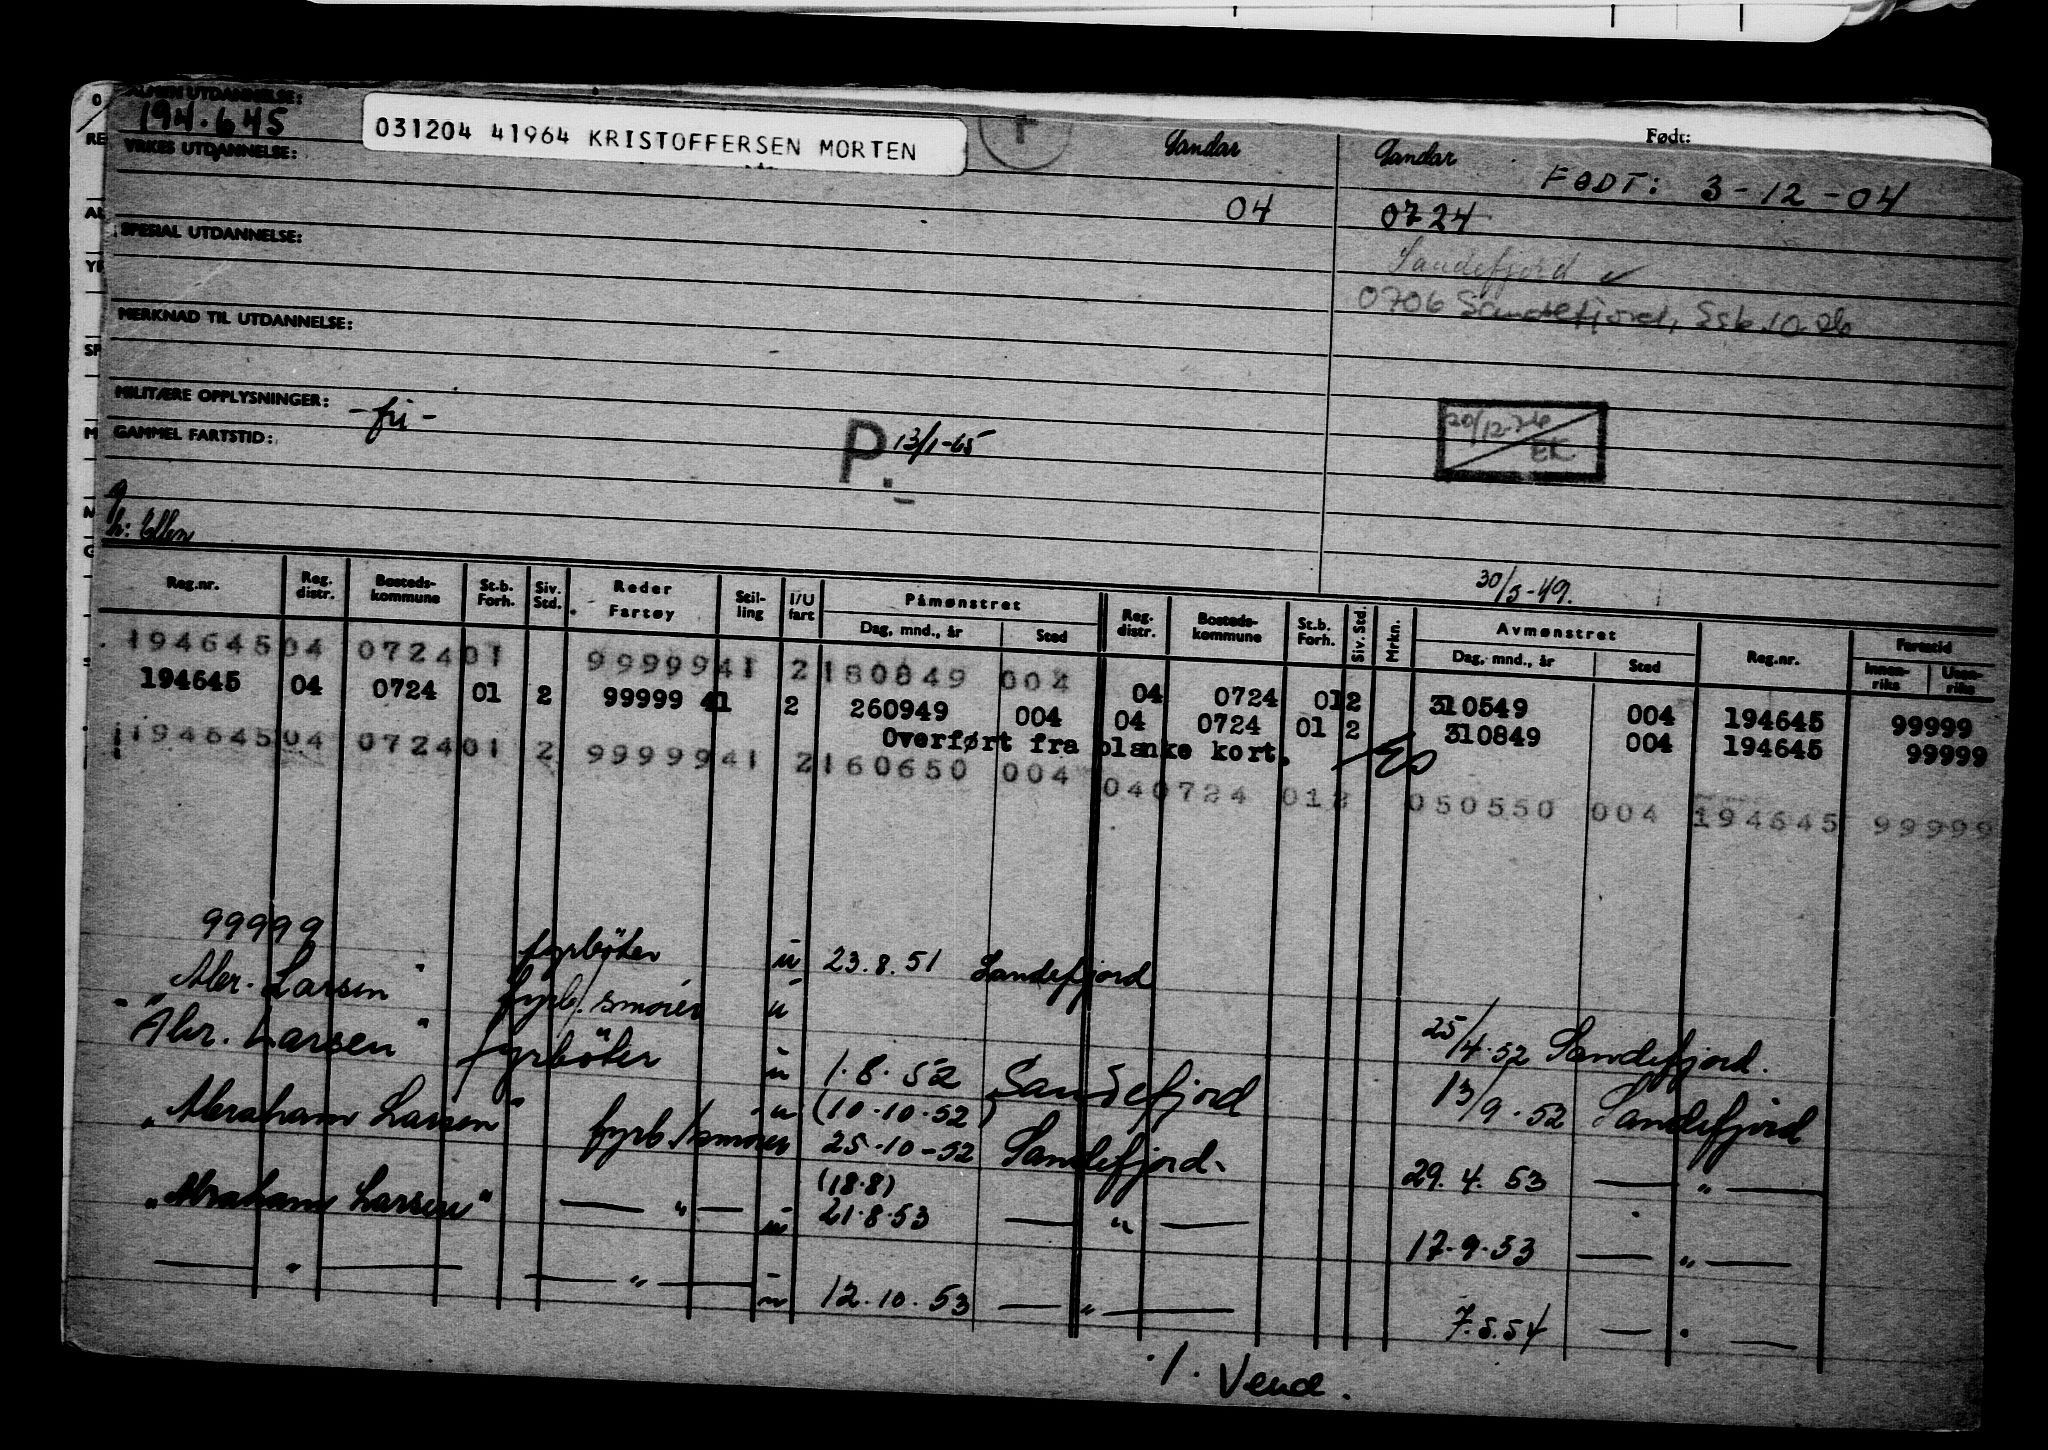 ALMEN UTDANNELSE:
194.645
031204 41964 KRISTOFFERSEN MORTEN
Sandar
Sandar
Født:
FØDT: 3-12-04
YRKES UTDANNELSE:
04
0724
SPESIAL UTDANNELSE:
Sandefjord ✓
0706 Sandefjord,
MERKNAD TIL UTDANNELSE:
MILITÆRE OPPLYSNINGER: -fri-
GAMMEL FARTSTID:
P. 13/1-65
20/12-76
EK
h: Ellen
30/5-49.
Reg.nr. Reg. distr. Bosteds-kommune St.b. Forh. Siv. Std. Reder Fartøy Stil-ling I/U fart Påmønstret Dag, mnd., år Sted Reg. distr. Bosteds-kommune St.b. Forh. Siv. Std. Mrkn. Avmønstret Dag, mnd., år Sted Reg.nr. Fartstid Innen-riks Uten-riks
194645 04 0724 01 99999 41 2 180849 004 04 0724 01 2 310549 004 194645 99999
194645 04 0724 01 2 99999 41 2 260949 004 04 0724 01 2 310849 004 194645 99999
Overført fra blanke kort.
194645 04 0724 01 2 99999 41 2 160650 004 04 0724 01 2 050550 004 194645 99999
99999 fyrbøter u 23.8.51 Sandefjord
Abr. Larsen " fyrb./smører u 25/4-52 Sandefjord.
"Abr. Larsen" fyrbøter u 1.8.52 Sandefjord 13/9-52 Sandefjord
(10-10-52)
"Abraham Larsen" fyrb./smører u 25-10-52 Sandefjord. 29.4.53 — " —
(18.8)
"Abraham Larsen" — " — u 21.8.53 — " — 17.9.53 — " —
— " — — " — u 12.10.53 — " — 7.5.54 — " —
./. Vend.